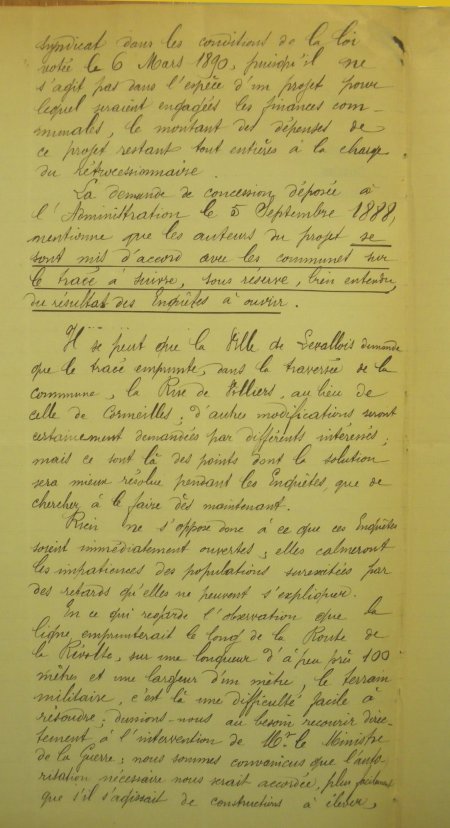 syndicat dans les conditions de la loi
votée le 6 Mars 1890, puisqu'il ne
s'agit pas dans l'espèce d'un projet pour
lequel seraient engagées les finances com-
munales, le montant des dépenses de
ce projet restant tout entières à la charge
du Rétrocessionnaire.
La demande de concession, déposée à
l'Administration le 5 Septembre 1888,
mentionne que les auteurs du projet se
sont mis d'accord avec les communes sur
le tracé à suivre, sous réserve, bien entendu,
du résultat des Enquêtes à ouvrir.
Il se peut que la Ville de Levallois demande
que le tracé emprunte, dans la traversée de la
commune, la Rue de Villiers, au lieu de
celle de Cormeilles; d'autres modifications seront
certainement demandées par différents intéressés;
mais ce sont là des points dont la solution
sera mieux résolue pendant les Enquêtes, que de
chercher à le faire dès maintenant.
Rien ne s'oppose donc à ce que ces Enquêtes
soient immédiatement ouvertes; elles calmeront
les impatiences des populations surexcitées par
des retards qu'elles ne peuvent s'expliquer.
En ce qui regarde l'observation que la
ligne emprunterait le long de la Route de
la Révolte, sur une longueur d'à peu près 100
mètres et une largeur d'un mètre, le terrain
militaire, c'est là une difficulté facile à
résoudre; dussions-nous au besoin recourir direc-
tement à l'intervention de Mr le Ministre
de la Guerre; nous sommes convaincus que l'auto-
risation nécessaire nous serait accordée, plus facilement
que s'il s'agissait de constructions à élever,